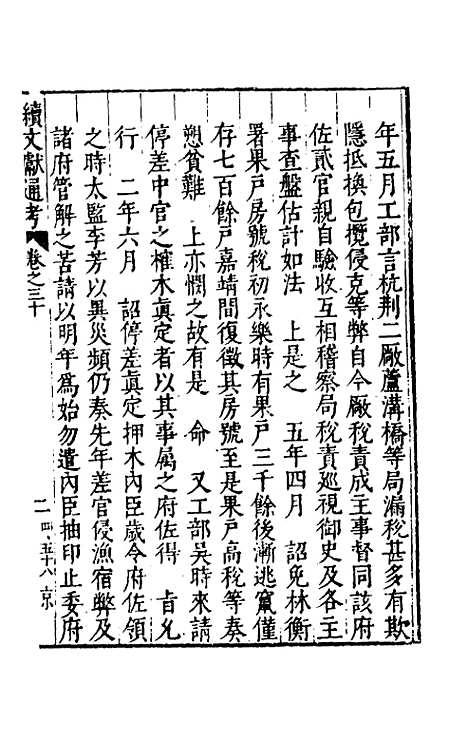 年五月工部言杭荆二厰蘆溝橋等局漏稅甚多有欺
隱抵換包攬侵克等弊自今厰稅責成主事督同該府
佐貳官親自驗收互相稽察局稅責巡視御史及各主
事查盤估計如法　上是之　五年四月　詔免林衡
署果戶房號稅初永樂時有果戶三千餘後漸逃竄僅
存七百餘戶嘉靖間復徵其房號至是果戶高稅等奏
愬貧難　上亦憫之故有是　命　又工部吳時來請
停差中官之榷木眞定者以其事属之府佐得　旨允
行　二年六月　詔停差眞定押木內臣歲令府佐領
之時太監李芳以異災頻仍奏先年差官侵漁宿弊及
諸府管解之苦請以明年爲始勿遣內臣抽印止委府
續文獻通考　卷之三十　二　四五十八　京